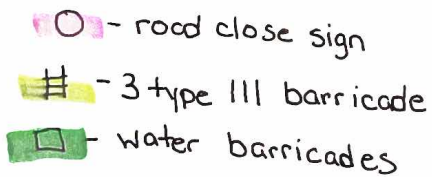 - rood close sign
- 3 type III barricade
- water barricades